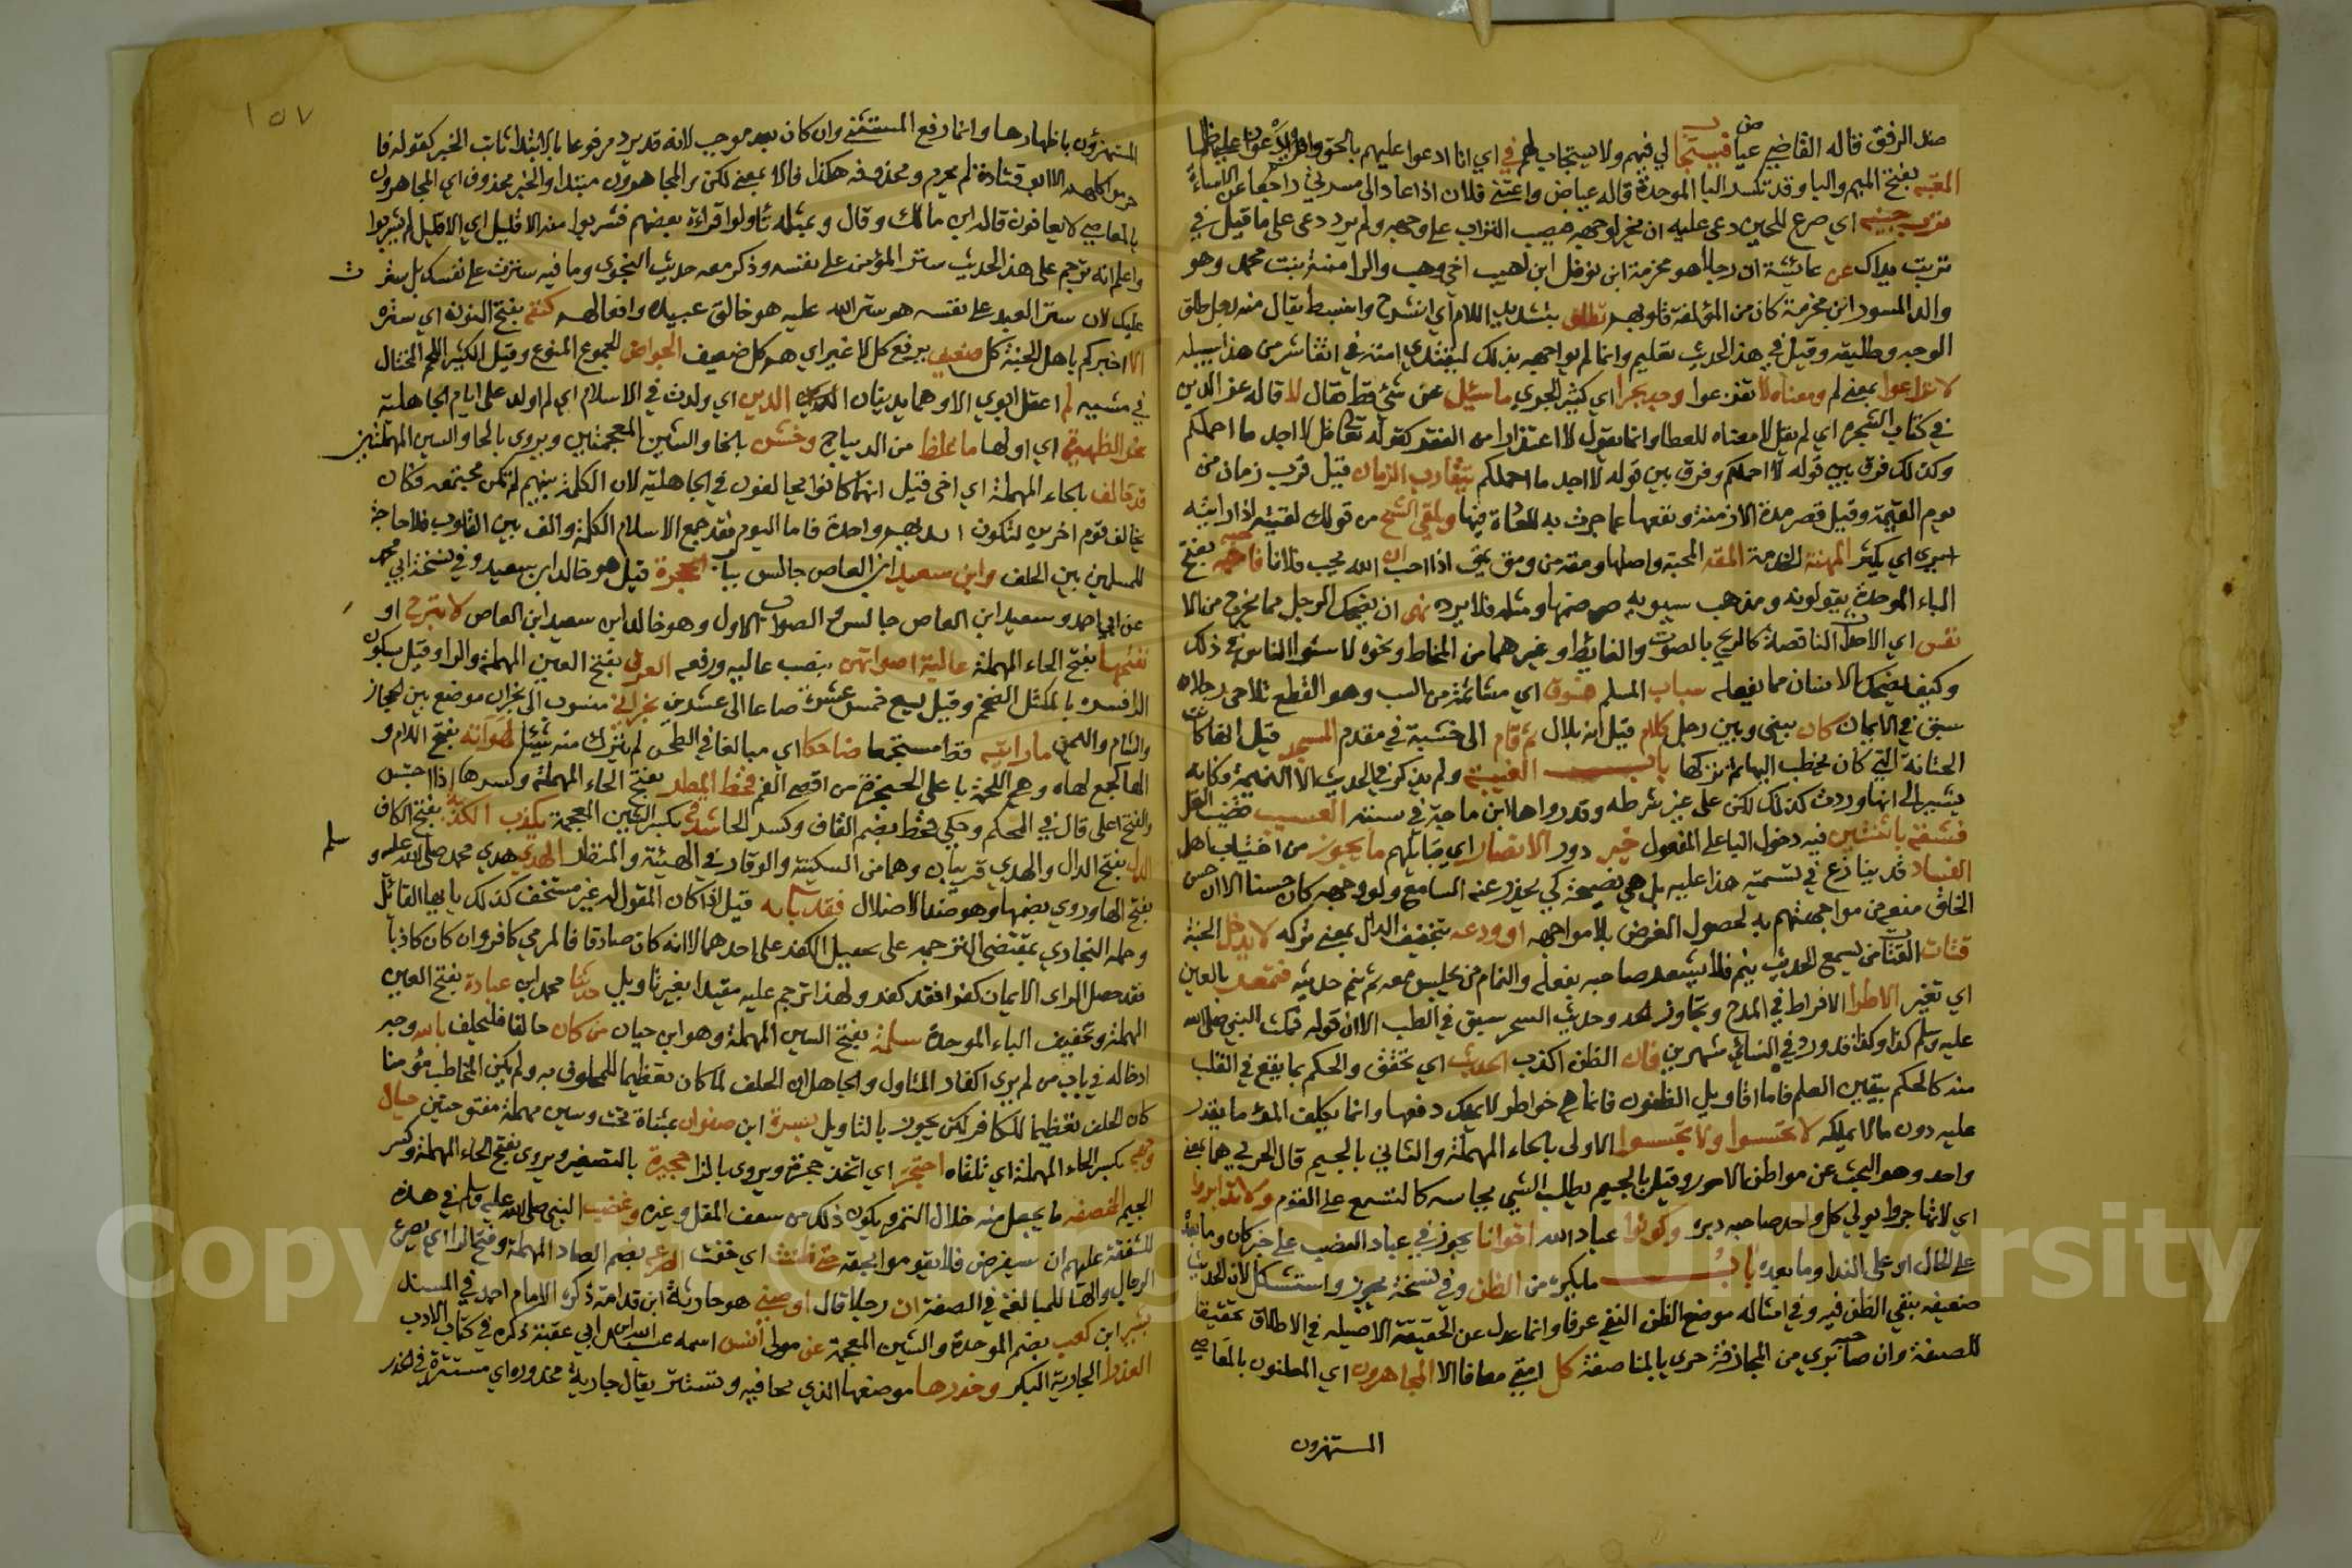 ضد الرفق قاله القاضي عياض فيستجاب لي فيهم ولا يستجاب لهم في اي انا ادعوا عليهم بالحق
المعتبة بفتح الميم والبا وقد تكسر البا الموحدة قاله عياض واعتبني فلان اذا عاد الى مسرتي راجعا عن الاساءة
ترب جبينه اي صرع للجبين دعى عليه ان يخر لوجهه فيصيب التراب على وجهه ولم يرد دعى على ما قيل في
تربت يداك عن عائشة ان رجلا هو مخرمة ابن نوفل ابن اهيب اخي وهب والد امنة بنت محمد وهو
والد المسور ابن مخرمة كان من المؤلفة قلوبهم تطلق بتشديد اللام اي انشرح وانبسط يقال منه رجل طلق
الوجه وطليقه وقيل في هذا الحديث تعليم وانما لم يواجهه بذلك لتقتدي امته في اتقا شر من هذا سبيله
لا تراعوا بمعنى لم ومعناه لا تفزعوا وجد بحرا اي كثير الجري ما سئل عن شئ قط فقال لا قاله عز الدين
في كتاب الشجرة اي لم يقل لا معناه للعطا وانما يقول لا اعتذارا من الفقد كقوله تعالى قل لا اجد ما احملكم
وكذلك فرق بين قوله لا احملكم وفرق بين قوله لا اجد ما احملكم يتقارب الزمان قيل قرب زمان من
يوم القيمة وقيل قصر مدة الازمنة ونقصها عما جرت به العادة فيها ويلقى الشح من قولك لقيته اذا رايته
اسري اي يكثر المهنة الخدمة المقة المحبة واصلها ومقة من ومق يمق اذا احب ان الله يحب فلانا فاحبه بفتح
الباء الموحدة يقولونه ومذهب سيبويه ضمها ومثله فلا يرده نهى ان يضحك الرجل مما يخرج من الا
نفس اي الاحداث الناقصة كالريح بالصوت والغائط وغيرهما من المخاط ونحوه لاستوا الناس في ذلك
وكيف يضحك الانسان مما يفعله سباب المسلم فسوق اي مشاتمة من السب وهو القطع تلاحى رجلان
سبق في الايمان كان بيني وبين رجل كلام قيل انه بلال ثم قام الى خشبة في مقدم المسجد قيل انها كانت
الحنانة التي كان يخطب اليها ثم تركها باب الغيبة ولم يذكر في الحديث الا النميمة وكانه
يشير الى انها وردت كذلك لكن على غير شرطه وقد رواها ابن ماجة في سننه العسيب قضيب النخل
فشقه باثنتين فيه دخول البا على المفعول خير دور الانصار اي قبائلهم ما يجوز من اغتياب اهل
الفساد قد ينازع في تسمية هذا غيبة بل هي نصيحة كي يحذر عنه السامع ولو وجهه كان حسنا الا ان حسن
الخلق منع من مواجهتهم به لحصول الغرض بلا مواجهه او ودعه بتخفيف الدال بمعنى تركه لا يدخل الجنة
قتات القتات من يسمع الحديث ينم فلا يشعر صاحبه بفعله والنمام من يجلس معه ثم ينم حديثه فتمعر بالعين
اي تغير الاطرا الافراط في المدح وتجاوز الحد وحديث السحر سبق في الطب الا ان قوله فمكث النبي صلى الله
عليه وسلم كذا وكذا قد ورد في النسائي شهرين فان الظن اكذب الحديث اي تحقق والحكم بما يقع في القلب
منه كالحكم بيقين العلم فاما اقاويل الظنون فانما هي خواطر لا يملك دفعها وانما يكلف المرؤ ما يقدر
عليه دون ما لا يملكه لا تحسسوا ولا تجسسوا الاولى بالحاء المهملة والثاني بالجيم قال الحربي هما بمعنى
واحد وهو البحث عن مواطن الامور وقيل بالجيم يطلب الشي بحاسة كالتسمع على القوم ولا تدابروا
اي لا تهاجروا يولي كل واحد صاحبه دبره وكونوا عباد الله اخوانا يجوز في عباد النصب على خبر كان وما بعده
على الحال او على الندا وما بعده باب ما يكره من الظن وفي نسخة يجوز واستشكل لان الحديث
ضعيفه بنفي الظن فيه وفي امثاله موضع الظن النفي عرفا وانما عدل عن الحقيقة الاصيله في الاطلاق تحقيقا
للصفة وان صاحبه بري من المجازفة حري بالمناصفة كل امتي معافا الا المجاهرون اي المعلنون بالمعاصي
المستهزون
١٥٧
المستهزؤن باظهارها وانما رفع المستثنى وان كان بعد موجب لانه قد يرد مرفوعا بالابتدا ثابت الخبر كقوله فا
حرموا كلهم الا ابو قتادة لم يحرم ومحذوفه هكذا فالا بمعنى لكن والمجاهرون مبتدا والخبر محذوف اي المجاهرون
بالمعاصي لا يعافون قاله ابن مالك وقال وبمثله تاولوا قراءة بعضهم فشربوا منه الا قليل اي الا قليل لم يشربوا
واعلم انه ترجم على هذا الحديث ستر المؤمن على نفسه وذكر معه حديث النجوى وما فيه سترت على نفسك بل سترت
عليك لان ستر العبد على نفسه هو ستر الله عليه هو خالق عبيده وافعالهم كنفه بفتح النون اي ستره
الا اخبركم باهل الجنة كل ضعيف برفع كل لا غير اي هم كل ضعيف الجواض الجموع المنوع وقيل الكثير اللحم المختال
في مشيه لم اعقل ابوي الا وهما يدينان الدين اي ولدت في الاسلام اي لم اولد على ايام الجاهلية
نحر الظهيرة اي اولها ما غلظ من الديباج وخشن بالخا والشين المعجمتين ويروى بالحا والسين المهملتين
قد حالف بالحاء المهملة اي اخى قيل انما كانوا يحالفون في الجاهلية لان الكلمة بينهم لم تكن مجتمعة فكان
يحالف قوم اخرين لتكون ايديهم واحدة فاما اليوم فقد جمع الاسلام الكلمة والف بين القلوب فلا حاجة
للمسلمين بين الحلف وابن سعيد ابن العاص جالس بباب الحجرة قيل هو خالد ابن سعيد وفي نسخة ابي محمد
عن ابي احمد وسعيد ابن العاص جالس والصواب الاول وهو خالد ابن سعيد ابن العاص لا بترح او
نفتهما بفتح الحاء المهملة عالية اصواتهن بنصب عاليه ورفعه العرق بفتح العين المهملة والرا وقيل بسكون
الرا فسره بالمكتل الضخم وقيل يسع خمس عشرة صاعا الى عشرين نجراني منسوب الى نجران موضع بين الحجاز
والشام واليمن ما رايته قط مستجمعا ضاحكا اي مبالغا في الضحك لم يترك منه شيئا لهواته بفتح اللام و
الها جمع لهاه وهي اللحمة باعلى الحنجرة من اقصى الفم قحط المطر بفتح الحاء المهملة وكسرها اذا احتبس
والفتح اعلى قال في المحكم وحكي قحط بضم القاف وكسر الحا شدقه بكسر الشين المعجمة يكذب الكذبة بفتح الكاف
الدل بفتح الدال والهدي قريبان وهما من السكينة والوقار في الهيئة والمنظر الهدي هدي محمد صلى الله عليه و
سلم
بفتح الها وروي بضمها وهو ضد الاضلال فقد باء به قيل اذا كان المقول له غير مستخف كذلك با بها القائل
وحمله البخاري بمقتضى الترجمه على تعجيل الكفر على احدهما لانه كان صادقا فالمرمي كافر وان كان كاذبا
فقد حصل الراى الايمان كفرا فقد كفر ولهذا ترجم عليه مقيدا بغير تاويل حدثنا محمد ابن عبادة بفتح العين
المهملة وتخفيف الباء الموحدة سلمة بفتح السين المهملة وهو ابن حيان من كان حالفا فليحلف بالله وجه
ادخاله في باب من لم يرى اكفار المتاول والجاهل ان الحلف لما كان تعظيما للمحلوف به ولم يكن المخاطب مؤمنا
كان الحلف تعظيما للكافر لكن يجوز بالتاويل يسرة ابن صفوان بمثناة تحت وسين مهملة مفتوحتين حيال
وجهه بكسر الحاء المهملة اي تلقاه احتجر اي اتخذ حجرة ويروى بالزا حجيرة بالتصغير ويروى بفتح الحاء المهملة وكسر
الجيم الخصفه ما يجعل منه خلال التمر ويكون ذلك من سعف المقل وغيره وغضب النبي صلى الله عليه وسلم في هذه
للشفقة عليهم ان سيفرض فلا يقوموا بحقه حتى ظننت اي خفت الصرعة بضم الصاد المهملة وفتح الرا اي يصرع
الرجال والها للمبالغة في الصفة ان رجلا قال اوصني هو جارية ابن قدامة ذكره الامام احمد في المسند
بشير ابن كعب بضم الموحدة والشين المعجمة عن مولى انس اسمه عبد الله ابن ابي عقبة ذكره في كتاب الادب
العذرا الجارية البكر وخدرها موضعها الذي يحافيه وتستتر يقال جارية مخدورة اي مستترة في خدر
Copyright © King Saud University